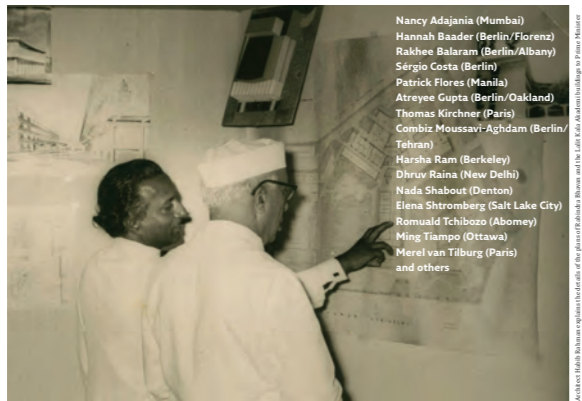 Nancy Adajania (Mumbai)
Hannah Baader (Berlin/Florenz)
Rakhee Balaram (Berlin/Albany)
Sérgio Costa (Berlin)
Patrick Flores (Manila)
Atreyee Gupta (Berlin/Oakland)
Thomas Kirchner (Paris)
Combiz Moussavi-Aghdam (Berlin/
Tehran)
Harsha Ram (Berkeley)
Dhruv Raina (New Delhi)
Nada Shabout (Denton)
Elena Shtromberg (Salt Lake City)
Romuald Tchibozo (Abomey)
Ming Tiampo (Ottawa)
Merel van Tilburg (Paris)
and others
Architect Habib Rahman explains the details of the plans of Rabindra Bhavan and the Lalit Kala Akademi buildings to Prime Minister